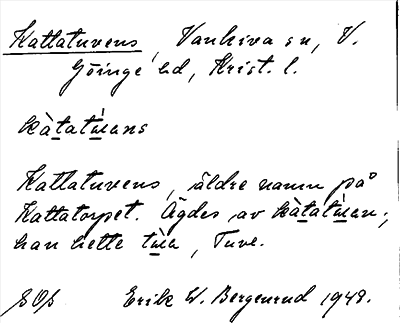 Kattatuvens, Vankiva sn, V.
Göinge hd, Krist. l.
kàtatẃans
Kattatuvens, äldre namn på
Kattatorpet. Ägdes av kàtatẃan;
han hette Tuve.
Erik W. Bergenrud 1948.